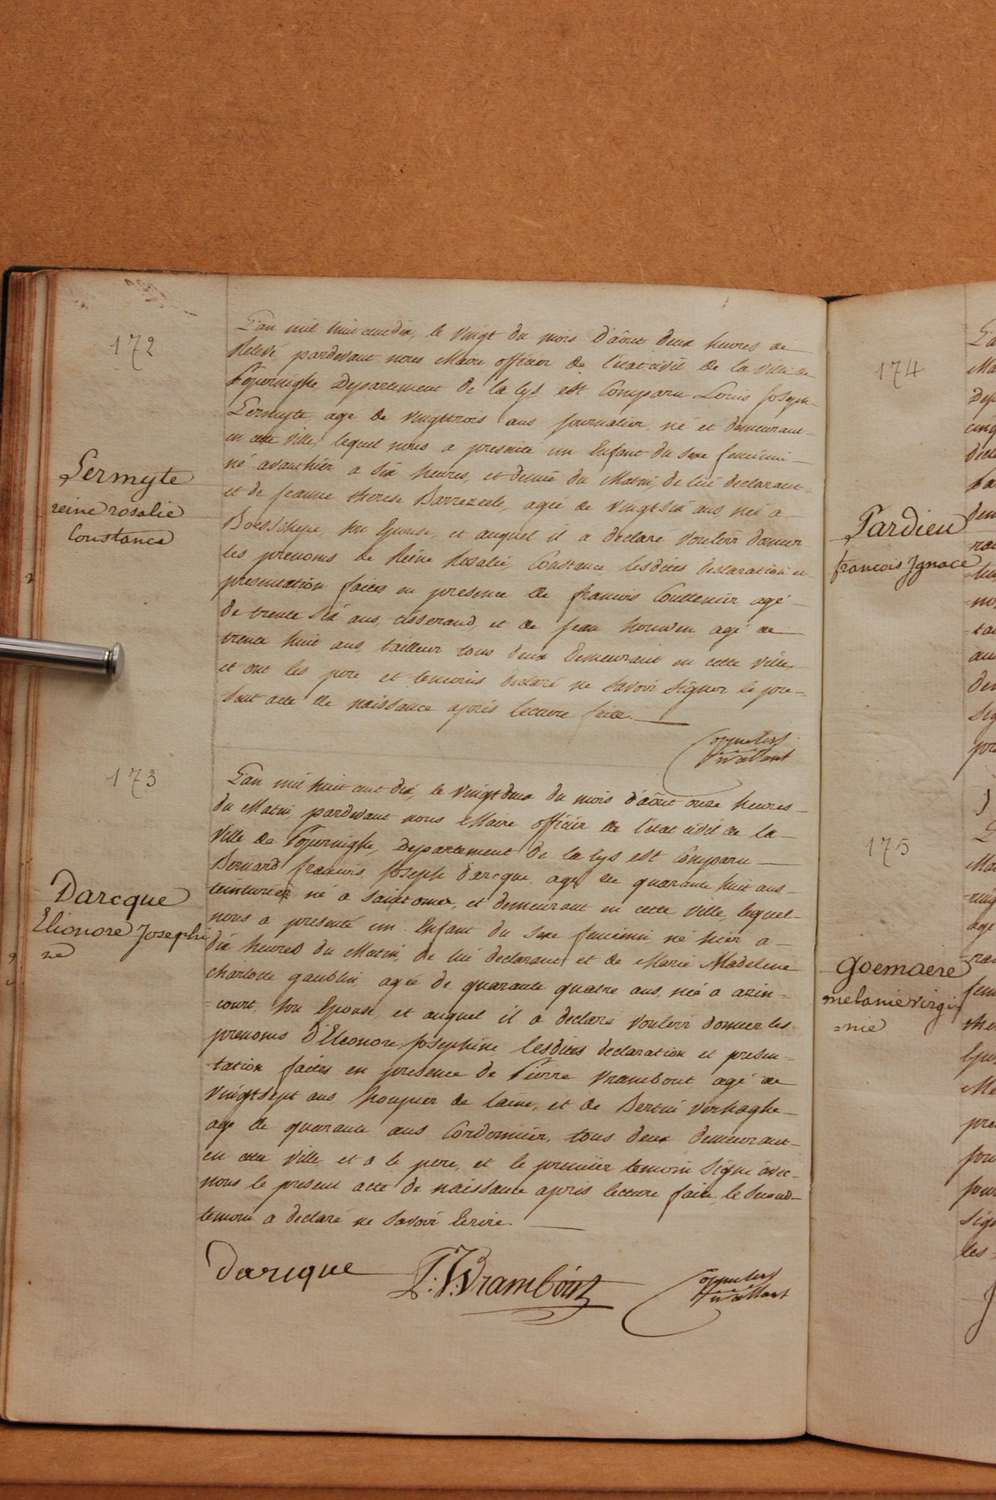 172
Lermyte
reine rosalie
Constance
L'an mil huit cent dix, le vingt du mois d'aôut deux heures de
Relevé pardevant nous Maire officier de l'état civil de la ville de
Poperinghe Departement de la Lys est Comparu Louis Joseph
Lermyte agé de vingttrois ans journalier, né et demeurant
en cette ville, lequel nous a presenté un Enfant du Sexe feminin
né avanthier a six heures, et demie du Matin, de lui declarant
et de Jeanne therese Barrezeele, agée de vingtsix ans née a
Boesschepe, son Epouse, et auquel il a declaré vouloir donner
les prenoms de Reine Rosalie, Constance lesdites declaration et
presentation faites en presence de francois Couttenier agé
de trente six ans, tisserand, et de Jean houwen agé de
trente huit ans, tailleur tous deux Demeurant en cette ville,
et ont les pere et temoins declaré ne savoir signer le pre-
sent acte de naissance après lecture faite.
173
Darcque
Elionore Josephi
ne
L'an mil huit cent dix, le vingtdeux du mois d'aôut onze heures
du Matin pardevant nous Maire officier de l'état civil de la
ville de Poperinghe, Departement de la Lys est Comparu
Bernard francois Joseph Darcque agé de quarante huit ans
teinturier né a Saintomer, et demeurant en cette ville, lequel
nous a presenté un Enfant du Sexe feminin né hier a
dix heures du Matin, de lui declarant et de Marie Madeleine
charlotte gaublin, agée de quarante quatre ans, née a azin-
court, son Epouse, et auquel il a declaré vouloir donner les
prenoms d'Eleonore Josephine lesdites declaration et presen-
tation faites en presence de Pierre Vrambout agé de
vingtsept ans houpier de laine, et de Bertin Verhaghe
agé de quarante ans Cordonnier, tous deux demeurant
en cette ville et a le pere, et le premier temoin signé avec
nous le present acte de naissance après lecture faite, le second
temoin a declaré ne savoir Ecrire.
Darcque P:J:Vrambout
174
Pardieu
francois Ignace
175
goemaere
melanie virgi
nie